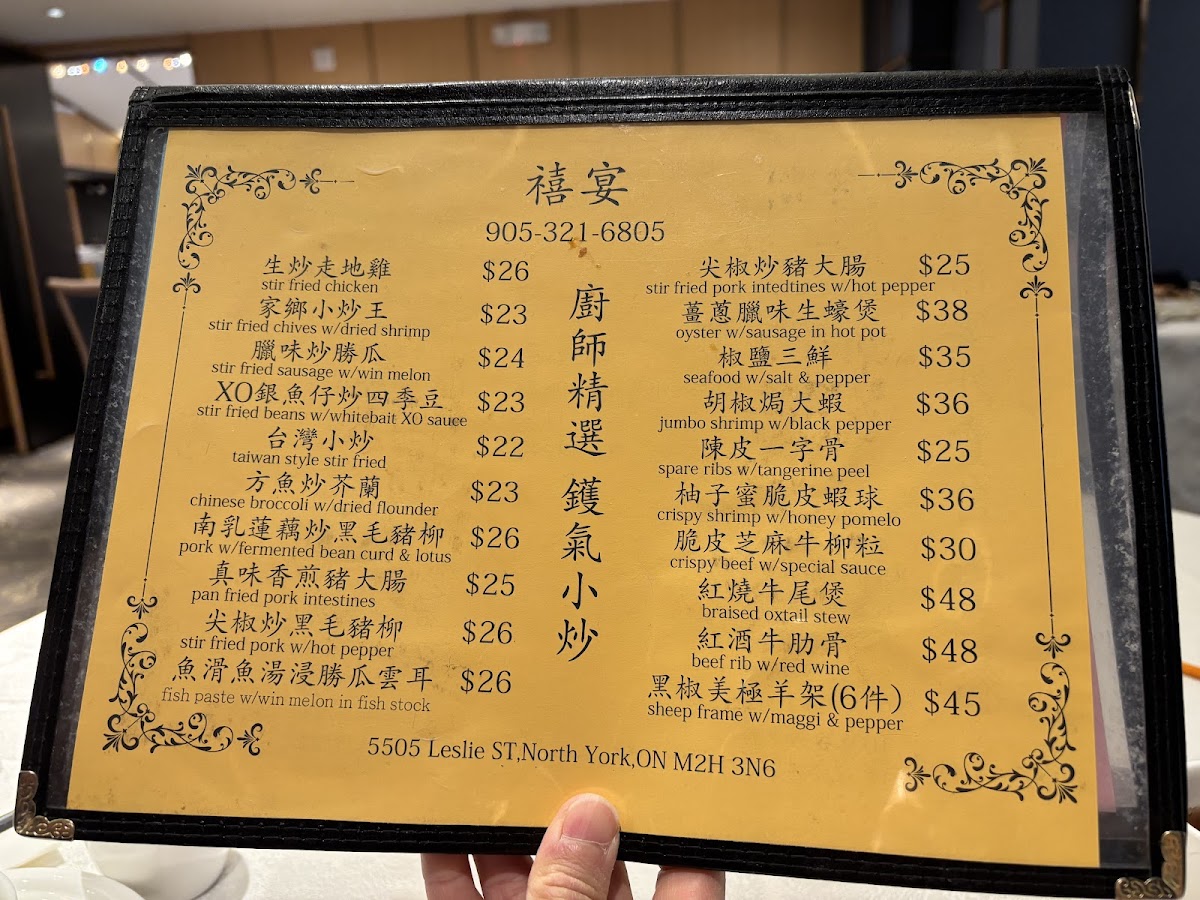 禧宴
905-321-6805
生炒走地雞 $26
stir fried chicken
家鄉小炒王 $23
stir fried chives w/dried shrimp
臘味炒勝瓜 $24
stir fried sausage w/win melon
XO銀魚仔炒四季豆 $23
stir fried beans w/whitebait XO sauce
台灣小炒 $22
taiwan style stir fried
方魚炒芥蘭 $23
chinese broccoli w/dried flounder
南乳蓮藕炒黑毛豬柳 $26
pork w/fermented bean curd & lotus
真味香煎豬大腸 $25
pan fried pork intestines
尖椒炒黑毛豬柳 $26
stir fried pork w/hot pepper
魚滑魚湯浸勝瓜雲耳 $26
fish paste w/win melon in fish stock
廚師精選 鑊氣小炒
尖椒炒豬大腸 $25
stir fried pork intedtines w/hot pepper
薑蔥臘味生蠔煲 $38
oyster w/sausage in hot pot
椒鹽三鮮 $35
seafood w/salt & pepper
胡椒焗大蝦 $36
jumbo shrimp w/black pepper
陳皮一字骨 $25
spare ribs w/tangerine peel
柚子蜜脆皮蝦球 $36
crispy shrimp w/honey pomelo
脆皮芝麻牛柳粒 $30
crispy beef w/special sauce
紅燒牛尾煲 $48
braised oxtail stew
紅酒牛肋骨 $48
beef rib w/red wine
黑椒美極羊架(6件) $45
sheep frame w/maggi & pepper
5505 Leslie ST,North York,ON M2H 3N6